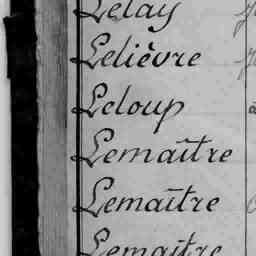 Lelay
Lelièvre
Leloup
Lemaître
Lemaître
Lemaître